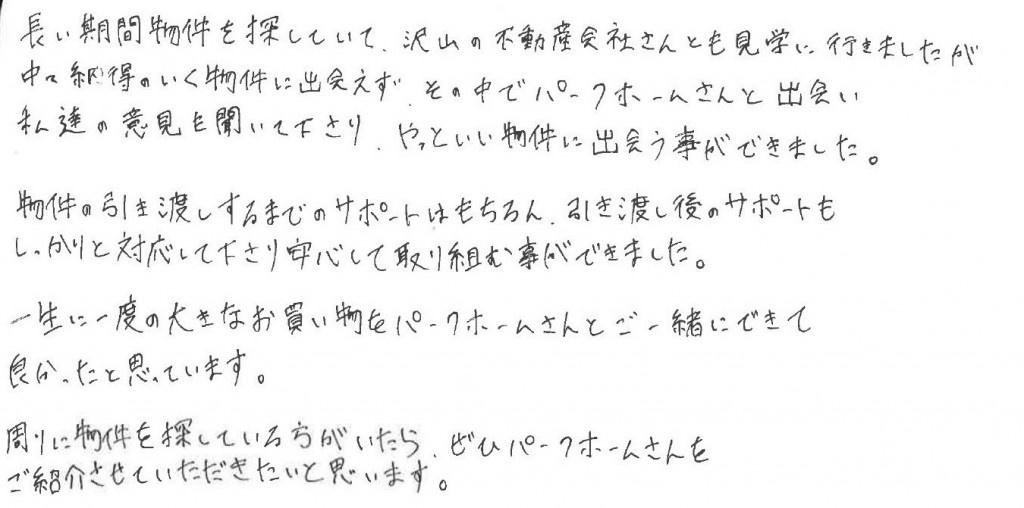 長い期間物件を探していて、沢山の不動産会社さんとも見学に行きましたが
中々納得のいく物件に出会えず、その中でパークホームさんと出会い
私達の意見を聞いて下さり、やっといい物件に出会う事ができました。
物件の引き渡しするまでのサポートはもちろん、引き渡し後のサポートも
しっかりと対応して下さり安心して取り組む事ができました。
一生に一度の大きなお買い物をパークホームさんとご一緒にできて
良かったと思っています。
周りに物件を探している方がいたら、ぜひパークホームさんを
ご紹介させていただきたいと思います。